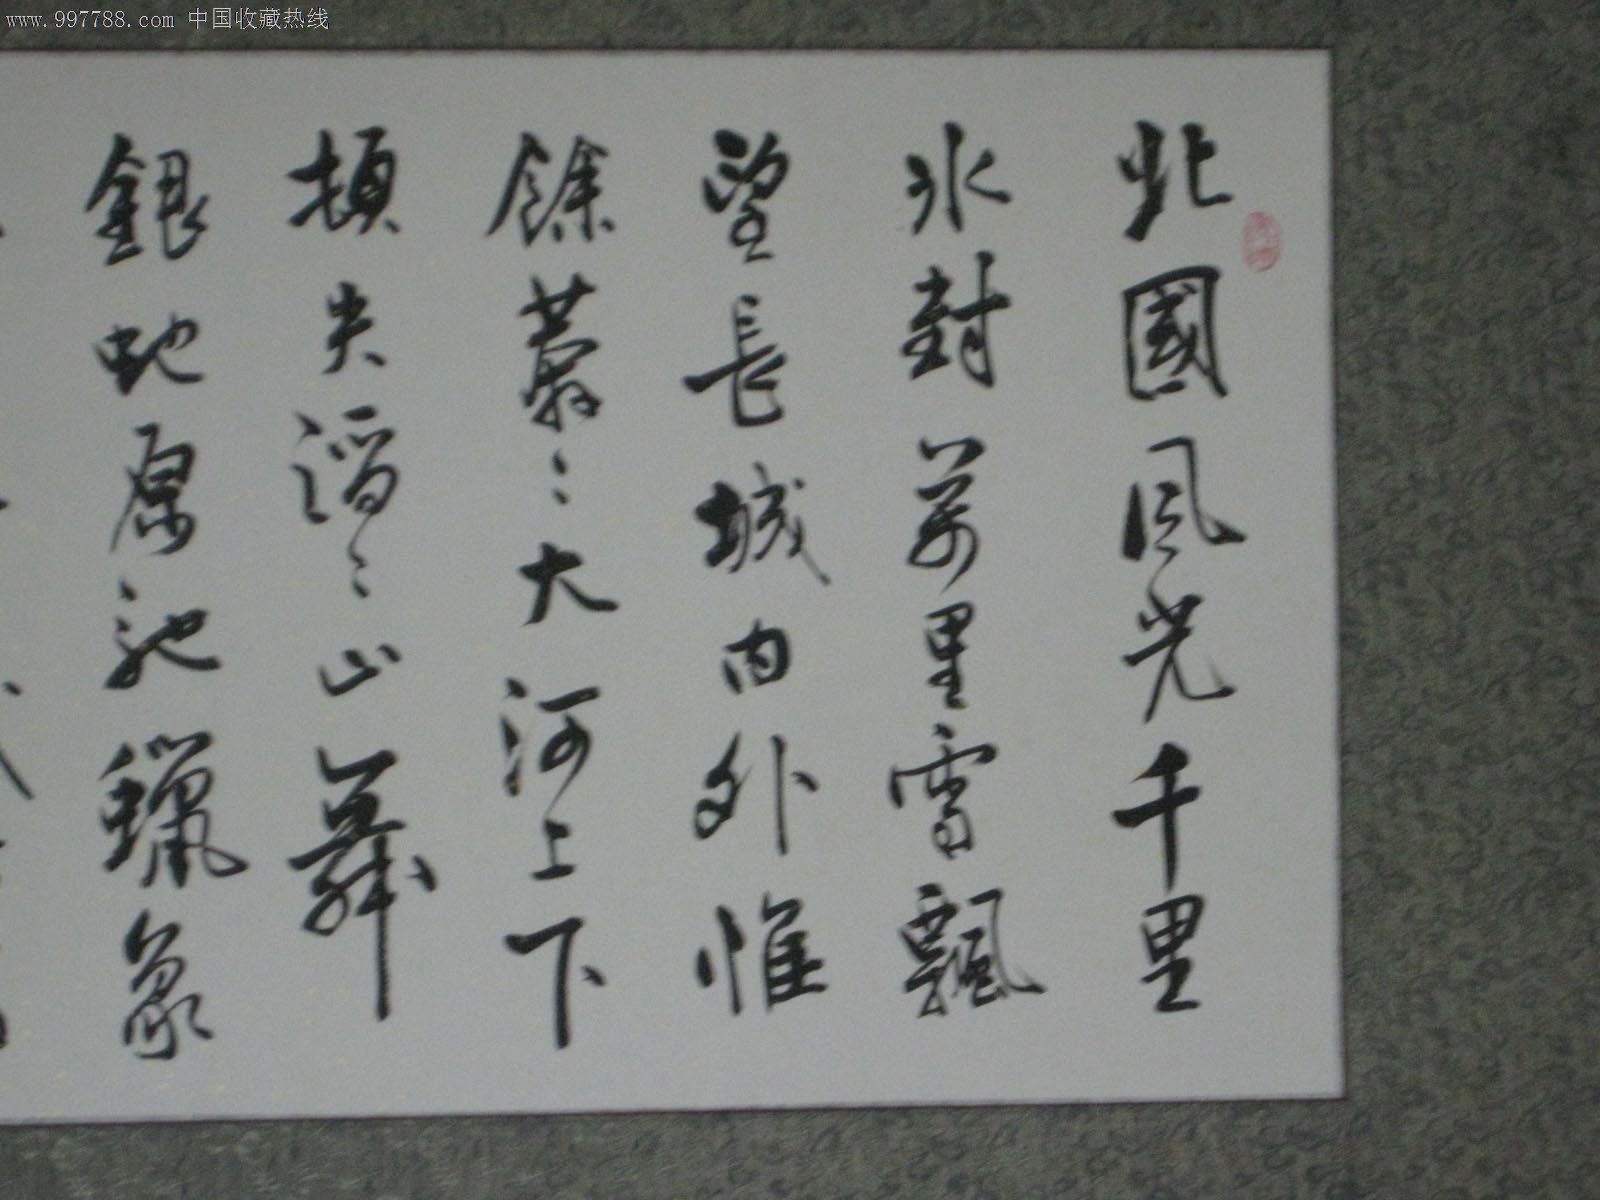 www.997788.com 中国收藏热线
北國风光千里
冰封万里雪飄
望長城内外惟
餘莽〻大河上下
頓失滔〻山舞
銀蛇原馳蠟象